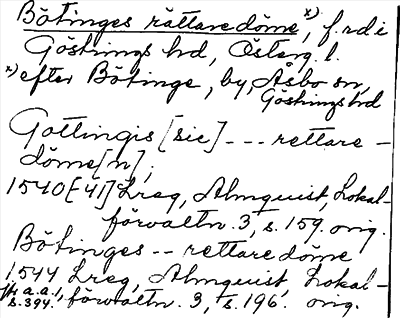 Bötinges rättaredöme x), f. rd i
Göstrings hd, Österg. l.
x) efter Bötinge, by, Åsbo sn,
Göstrings hd
Gottingis [sic] --- rettare-
döme[n];
1540[-41] Lreg, Almquist, Lokal-
förvaltn. 3, s. 159. orig.
Bötinges -- rettaredöme
1544 Lreg, Almquist, Lokal-
förvaltn. 3, s. 196. orig.
a.a. 1,
s. 394.